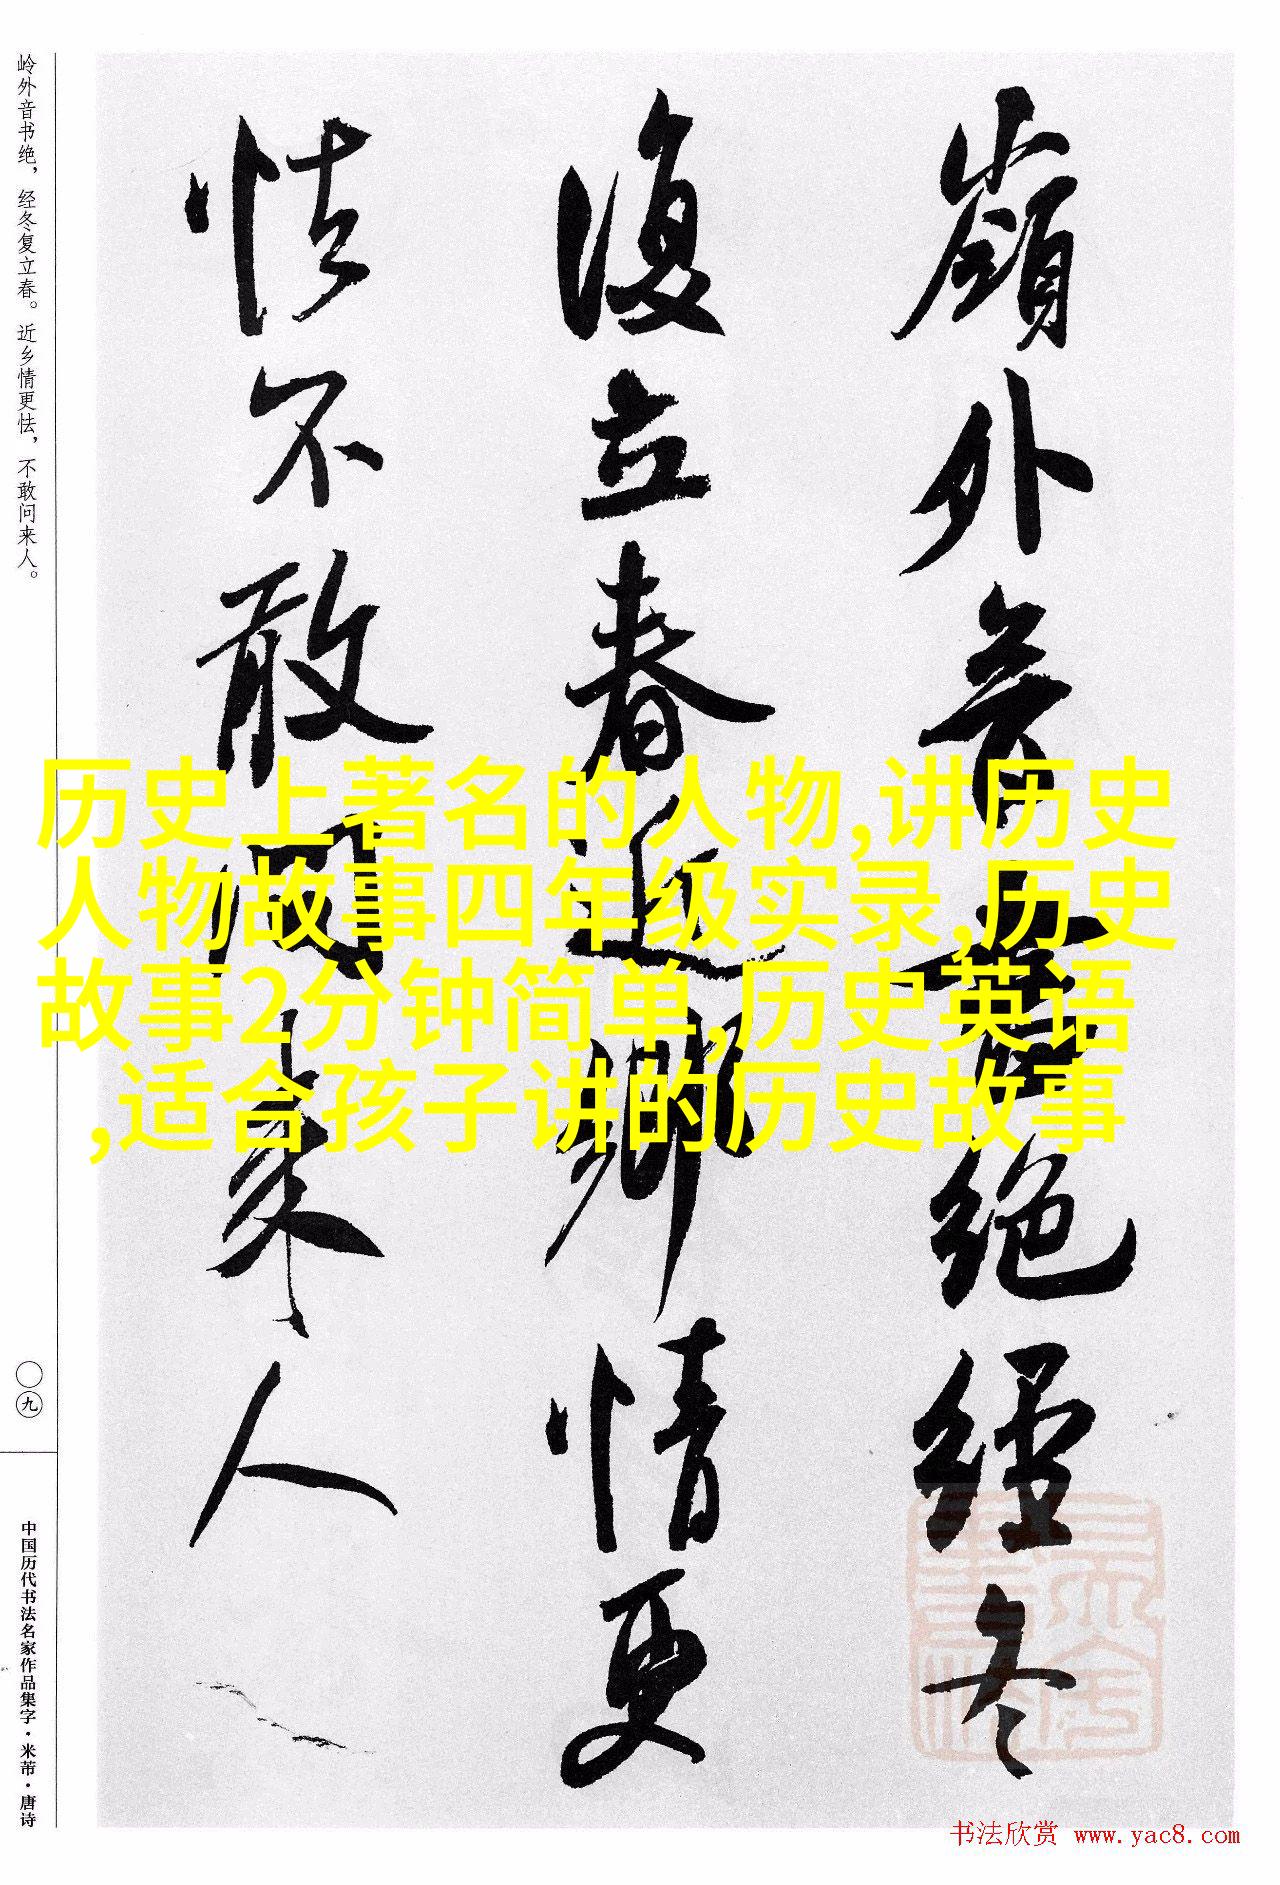 岭外音书绝，经冬复立春。近乡情更怯，不敢问来人。
嶺外音书絕經冬
復立春近鄉情更
怯不敢问来人
历史上著名的人物,讲历史
人物故事四年级实录,历史
故事2分钟简单,历史英语
,适合孩子讲的历史故事
〇九
中国历代书法名家作品集字·米芾·唐诗
书法欣赏 www.yac8.com